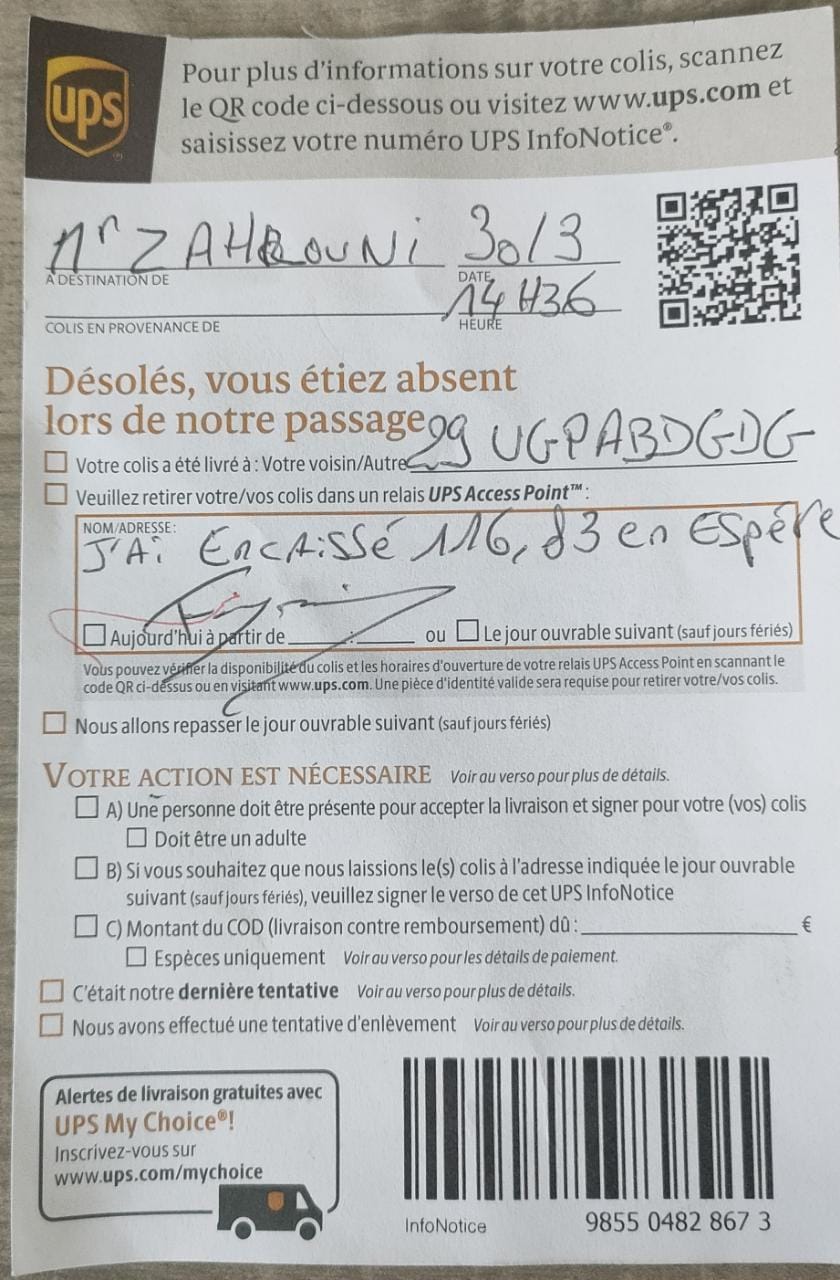 ups
Pour plus d'informations sur votre colis, scannez
le QR code ci-dessous ou visitez www.ups.com et
saisissez votre numéro UPS InfoNotice®.
Mr ZAHROUNi 30/3
À DESTINATION DE DATE
14H36
COLIS EN PROVENANCE DE HEURE
Désolés, vous étiez absent
lors de notre passage
29 UGPABDGDG
Votre colis a été livré à : Votre voisin/Autre
Veuillez retirer votre/vos colis dans un relais UPS Access Point™ :
NOM/ADRESSE:
J'Ai EncAiSSé 116,83 en ESpére
Aujourd'hui à partir de : ou Le jour ouvrable suivant (sauf jours fériés)
Vous pouvez vérifier la disponibilité du colis et les horaires d'ouverture de votre relais UPS Access Point en scannant le
code QR ci-dessus ou en visitant www.ups.com. Une pièce d'identité valide sera requise pour retirer votre/vos colis.
Nous allons repasser le jour ouvrable suivant (sauf jours fériés)
VOTRE ACTION EST NÉCESSAIRE Voir au verso pour plus de détails.
A) Une personne doit être présente pour accepter la livraison et signer pour votre (vos) colis
Doit être un adulte
B) Si vous souhaitez que nous laissions le(s) colis à l'adresse indiquée le jour ouvrable
suivant (sauf jours fériés), veuillez signer le verso de cet UPS InfoNotice
C) Montant du COD (livraison contre remboursement) dû : €
Espèces uniquement Voir au verso pour les détails de paiement.
C'était notre dernière tentative Voir au verso pour plus de détails.
Nous avons effectué une tentative d'enlèvement Voir au verso pour plus de détails.
Alertes de livraison gratuites avec
UPS My Choice®!
Inscrivez-vous sur
www.ups.com/mychoice
InfoNotice 9855 0482 867 3